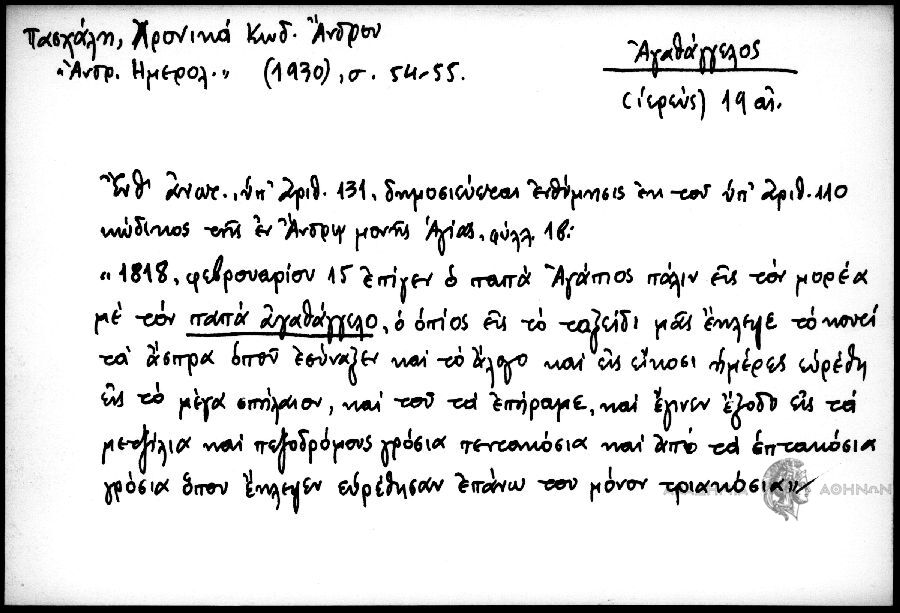 Πασχάλη, Χρονικά Κωδ. Ἄνδρου
"Ἀνδρ. Ἡμερολ." (1930), σ. 54-55.
Ἀγαθάγγελος
(ἱερεύς) 19 αἰ.
Ἔνθ' ἀνωτ., ὑπ' ἀριθ. 131, δημοσιεύεται ἐνθύμησις ἐκ τοῦ ὑπ' ἀριθ. 110
κώδικος τῆς ἐν Ἄνδρῳ μονῆς Ἁγίας, φύλλ. 1β:
"1818, φεβρουαρίου 15 ἐπίγεν ὁ παπὰ Ἀγάπιος πάλιν εἰς τὸν μορέα
μὲ τὸν παπὰ ἀγαθάγγελο, ὁ ὁπίος εἰς τὸ ταξείδι μᾶς ἔκλεψε τὸ κουτί
τὰ ἄσπρα ὁποῦ ἐσύναξεν καὶ τὸ ἄλογο καὶ εἰς εἴκοσι ἡμέρες εὑρέθη
εἰς τὸ μέγα σπήλαιον, καὶ τοῦ τὰ ἐπήραμε, καὶ ἔγινεν ἔξοδο εἰς τὰ
μετζίλια καὶ πεζοδρόμους γρόσια πεντακόσια καὶ ἀπὸ τὰ ἑπτακόσια
γρόσια ὁποῦ ἔκλεψεν εὑρέθησαν ἐπάνω του μόνον τριακόσια"
ΑΘΗΝΩΝ